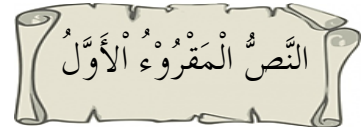 النَّصُّ الْمَقْرُوْءُ اْلأَوَّلُ